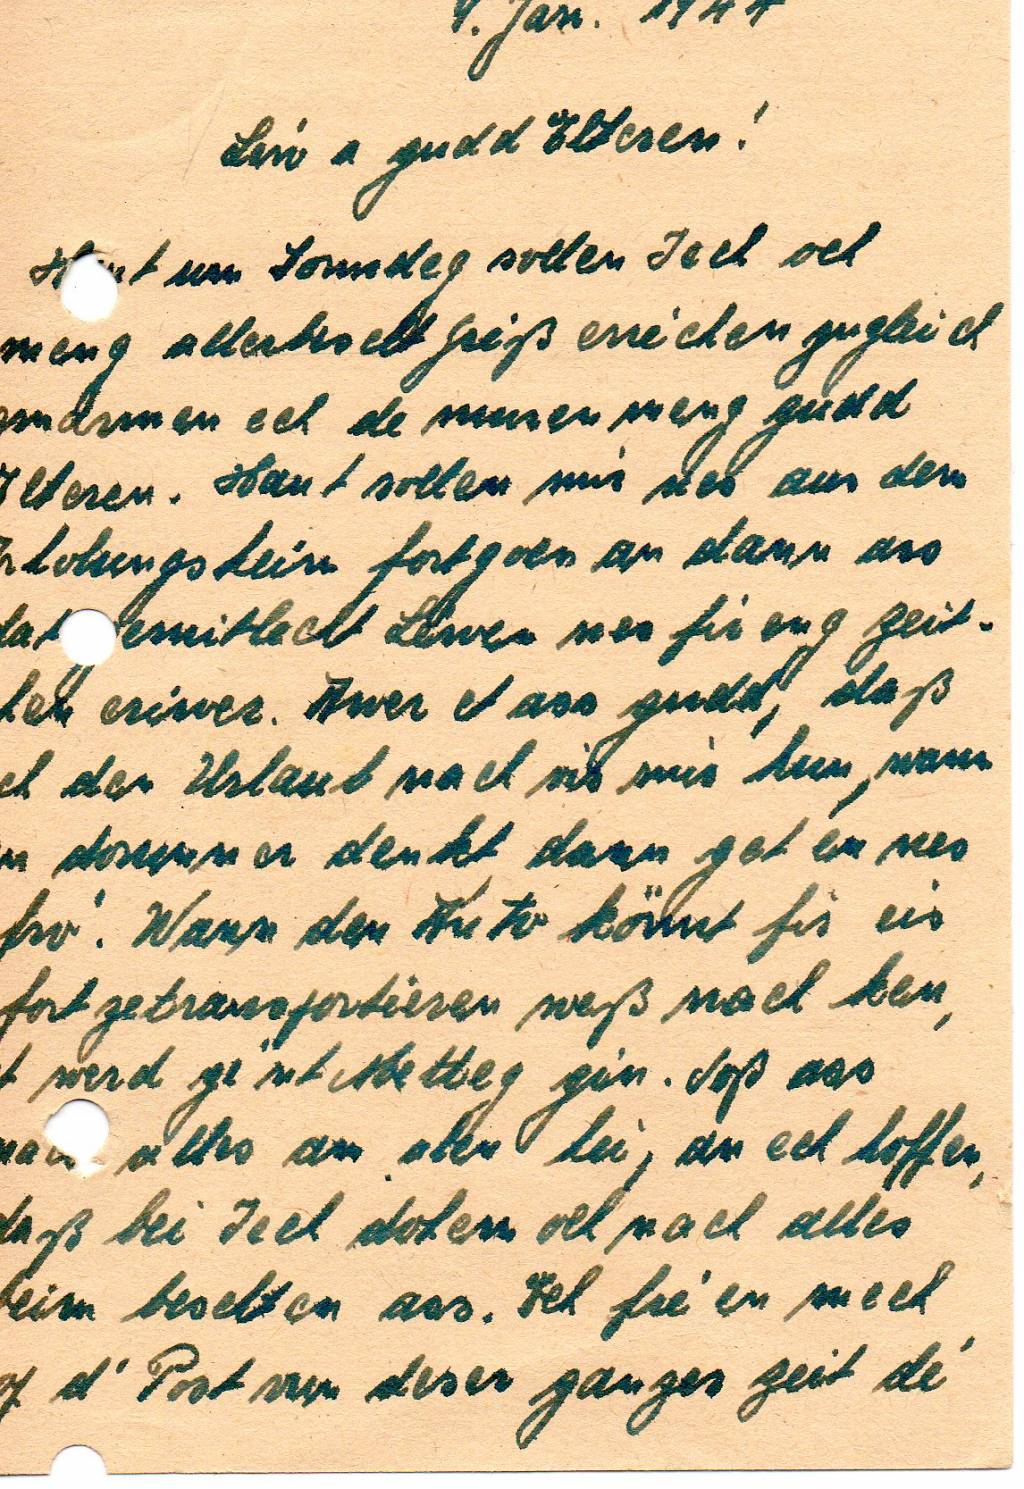 9. Jan. 1944
Leiv a gudd Elteren!
Haut um Sonndeg sollen Iech och
meng allerbescht Griß erreichen zugleich
ëmärmen ech de mussen meng gudd
Elteren. Haut sollen mir nes aus dem
Erholungsheim fortgoen an dann ass
dat gemitlecht Liewen nes fir eng Zeit-
chen eriwer. Awer et ass gudd, daß
ech den Urlaub nach vir mir hun, wann
en dorunner denkt dann get en nes
fro'. Wann den Auto könnt fir eis
fort zetransportieren weß nach ken,
et werd ge'nt Metteg gin. Soß ass
nach alles am alen hei, an ech hoffen,
daß bei Iech dohem och nach alles
beim beschten ass. Ech fre'en mech
of d' Post vun deser ganzer Zeit de'